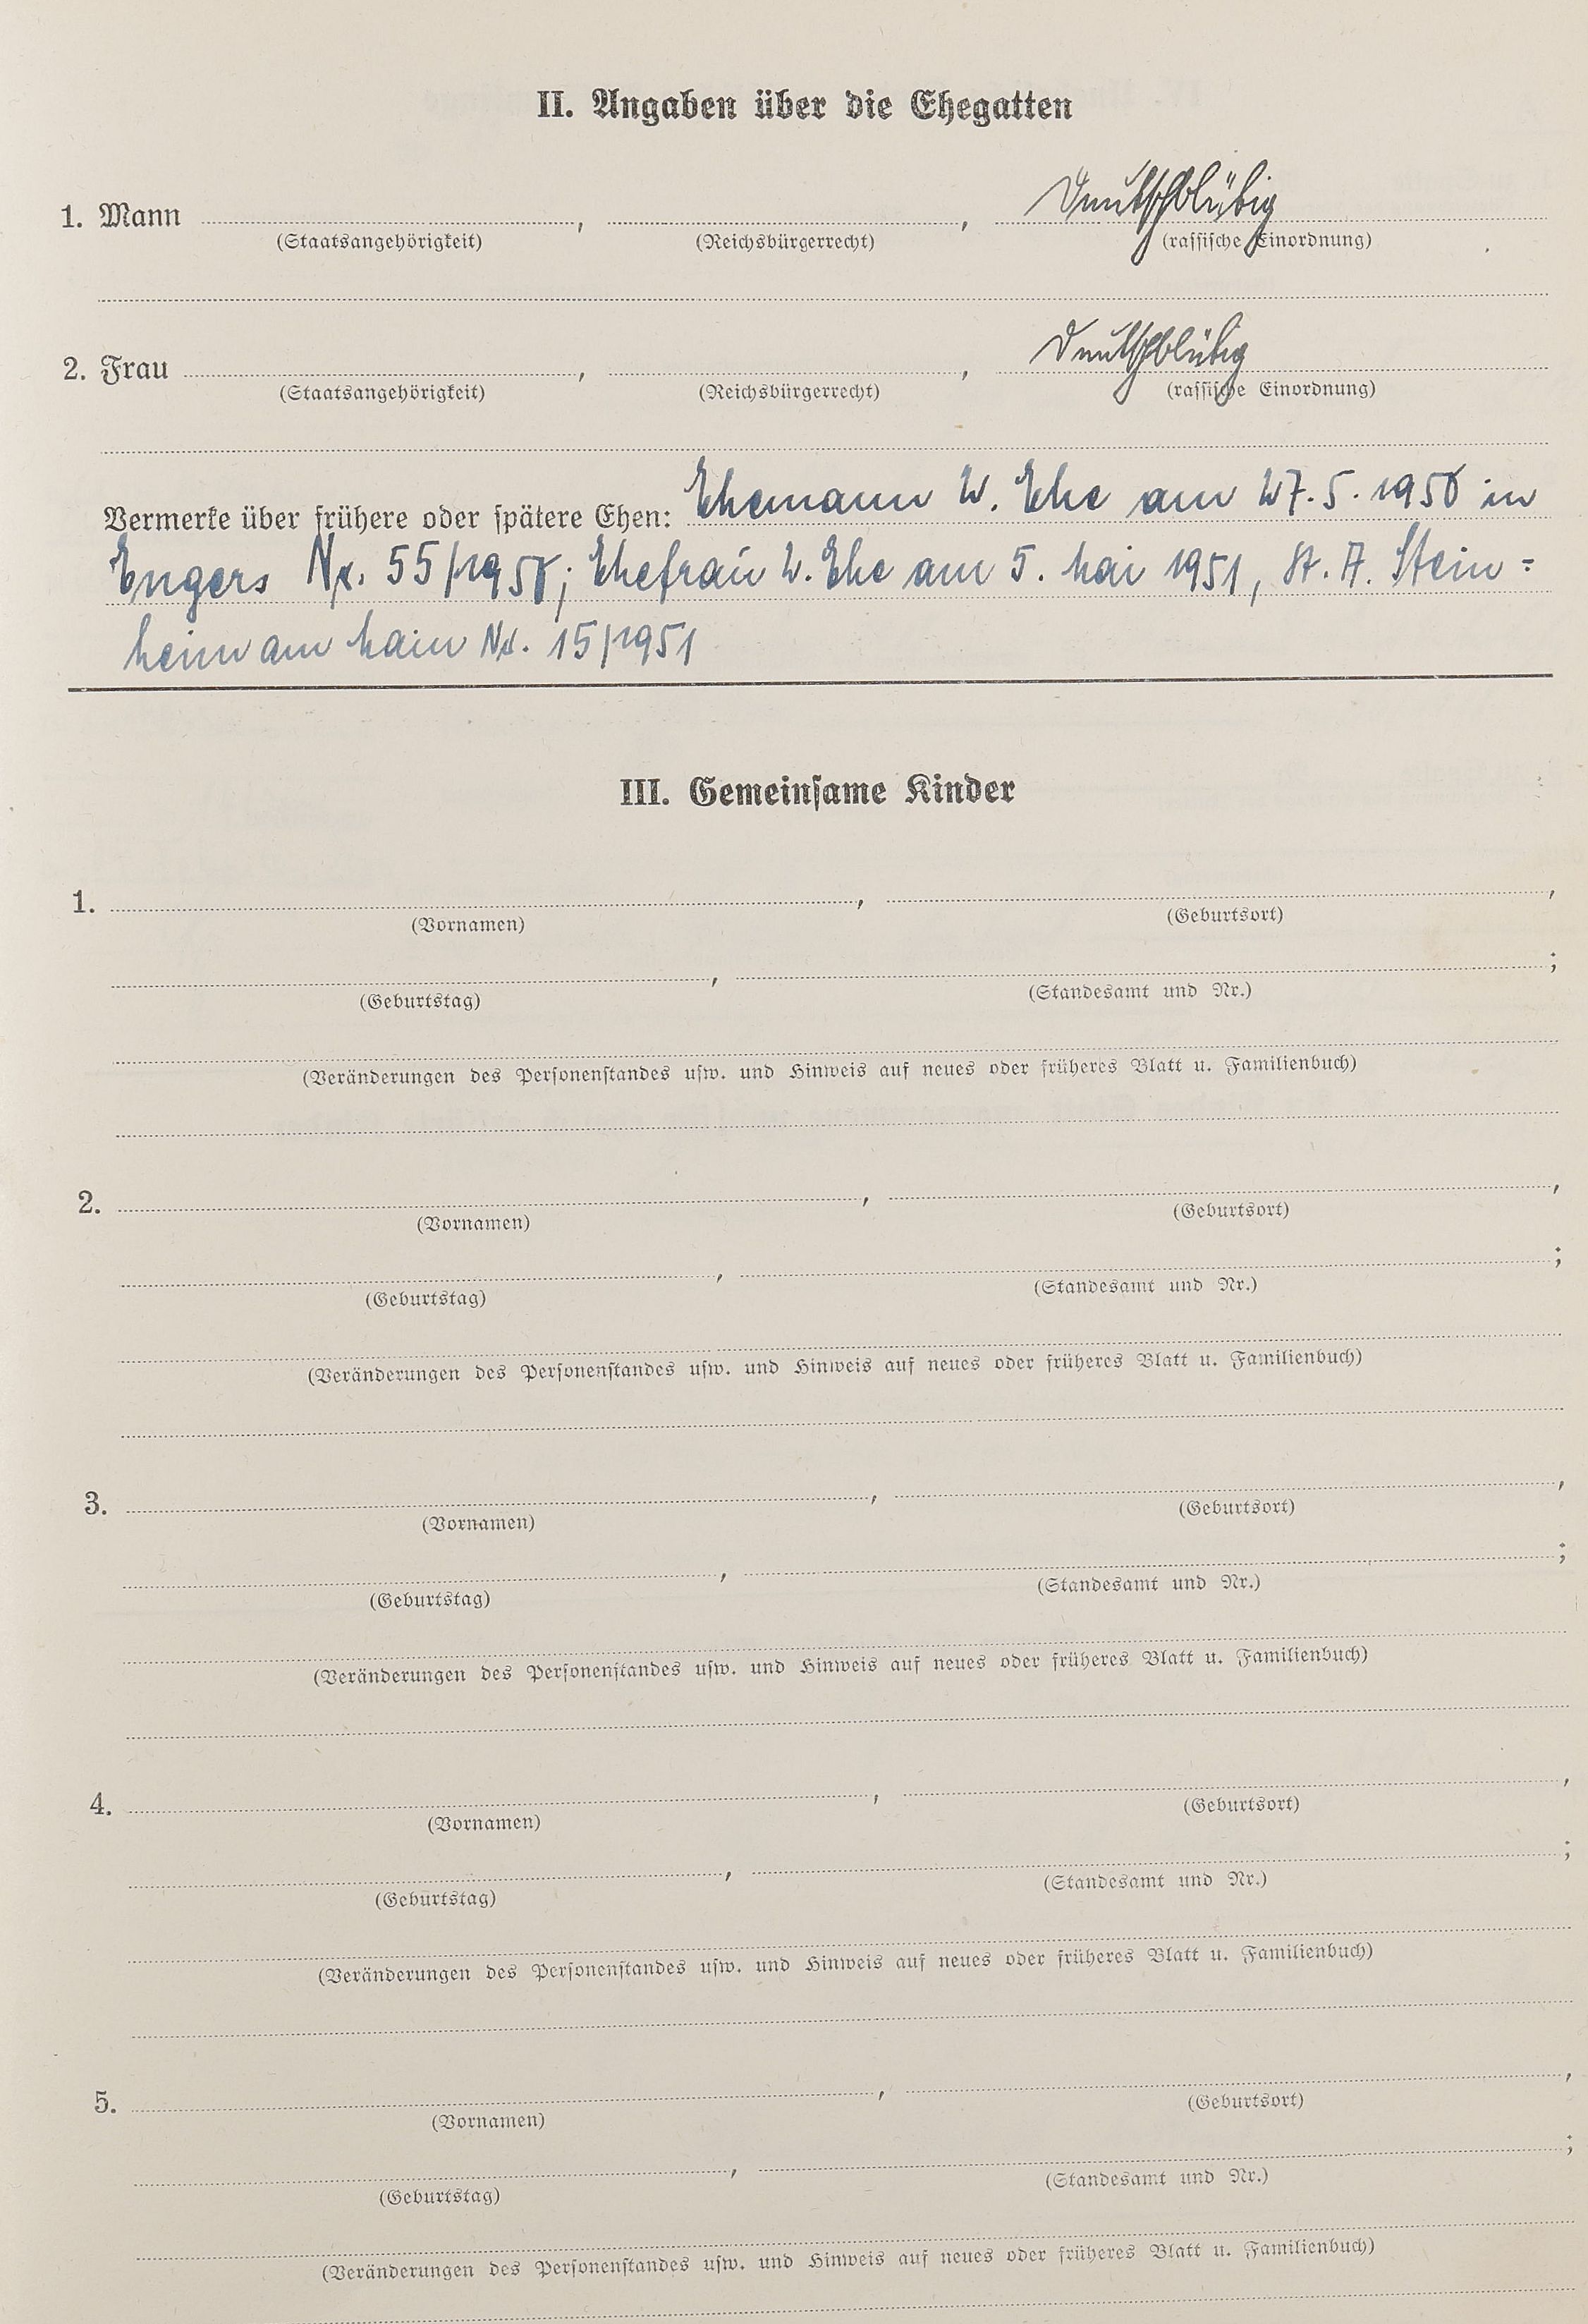 II. Angaben über die Ehegatten
1. Mann , , Deutschblütig
(Staatsangehörigkeit) (Reichsbürgerrecht) (rassische Einordnung)
2. Frau , , Deutschblütig
(Staatsangehörigkeit) (Reichsbürgerrecht) (rassische Einordnung)
Vermerke über frühere oder spätere Ehen: Ehemann 2. Ehe am 27. 5. in
Engers Nr. ; Ehefrau 2. Ehe am 5. Mai 1951, St. A. Stein=
heim am Main Nr. 15/1951
III. Gemeinsame Kinder
1. , ,
(Vornamen) (Geburtsort)
, ;
(Geburtstag) (Standesamt und Nr.)
(Veränderungen des Personenstandes usw. und Hinweis auf neues oder früheres Blatt u. Familienbuch)
2. , ,
(Vornamen) (Geburtsort)
, ;
(Geburtstag) (Standesamt und Nr.)
(Veränderungen des Personenstandes usw. und Hinweis auf neues oder früheres Blatt u. Familienbuch)
3. , ,
(Vornamen) (Geburtsort)
, ;
(Geburtstag) (Standesamt und Nr.)
(Veränderungen des Personenstandes usw. und Hinweis auf neues oder früheres Blatt u. Familienbuch)
4. , ,
(Vornamen) (Geburtsort)
, ;
(Geburtstag) (Standesamt und Nr.)
(Veränderungen des Personenstandes usw. und Hinweis auf neues oder früheres Blatt u. Familienbuch)
5. , ,
(Vornamen) (Geburtsort)
, ;
(Geburtstag) (Standesamt und Nr.)
(Veränderungen des Personenstandes usw. und Hinweis auf neues oder früheres Blatt u. Familienbuch)